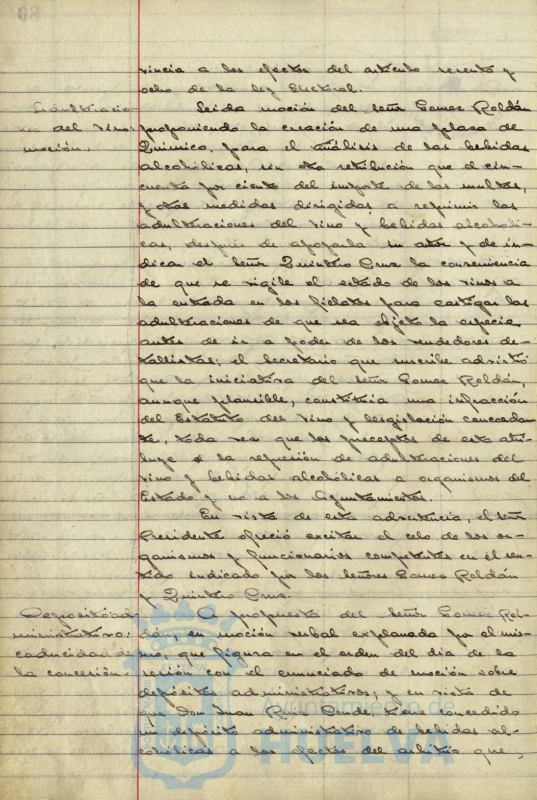 vincia a los efectos del artículo sesenta y
ocho de la ley Electoral.
Adulteracio-
nes del vino:
moción.
Leida moción del señor Gomez Roldán
proponiendo la creación de una plaza de
Químico, para el análisis de las bebidas
alcohólicas, sin otra retribución que el cin-
cuenta por ciento del importe de las multas,
y otras medidas dirigidas a reprimir las
adulteraciones del vino y bebidas alcoholi-
cas, después de apoyarla su autor y de in-
dicar el señor Quintero Cruz la conveniencia
de que se vigile el estado de los vinos a
la entrada en los fielatos para castigar las
adulteraciones de que sea objeto la especie
antes de ir a poder de los vendedores de-
tallistas; el Secretario que suscribe advirtió
que la iniciativa del señor Gomez Roldán,
aunque plausible, constituía una infracción
del Estatuto del vino y legislación concordan-
te, toda vez que los preceptos de esta atri-
buye a la represión de adulteraciones del
vino y bebidas alcohólicas a organismos del
Estado y no a los Ayuntamientos.
En vista de esta advertencia, el señor
Presidente ofreció excitar el celo de los or-
ganismos y funcionarios competentes en el sen-
tido indicado por los señores Gomez Roldán
y Quintero Cruz.
Depósito ad-
ministrativo:
caducidad de
la concesión.
A propuesta del señor Gomez Rol-
dán, en moción verbal explanada por el mis-
mo, que figura en el orden del día de la
sesión con el enunciado de moción sobre
depósitos administrativos, y en vista de
que Don Juan Ruiz Conde tiene concedido
un depósito administrativo de bebidas al-
cohólicas a los efectos del arbitrio que,
Ayuntamiento de
HUELVA